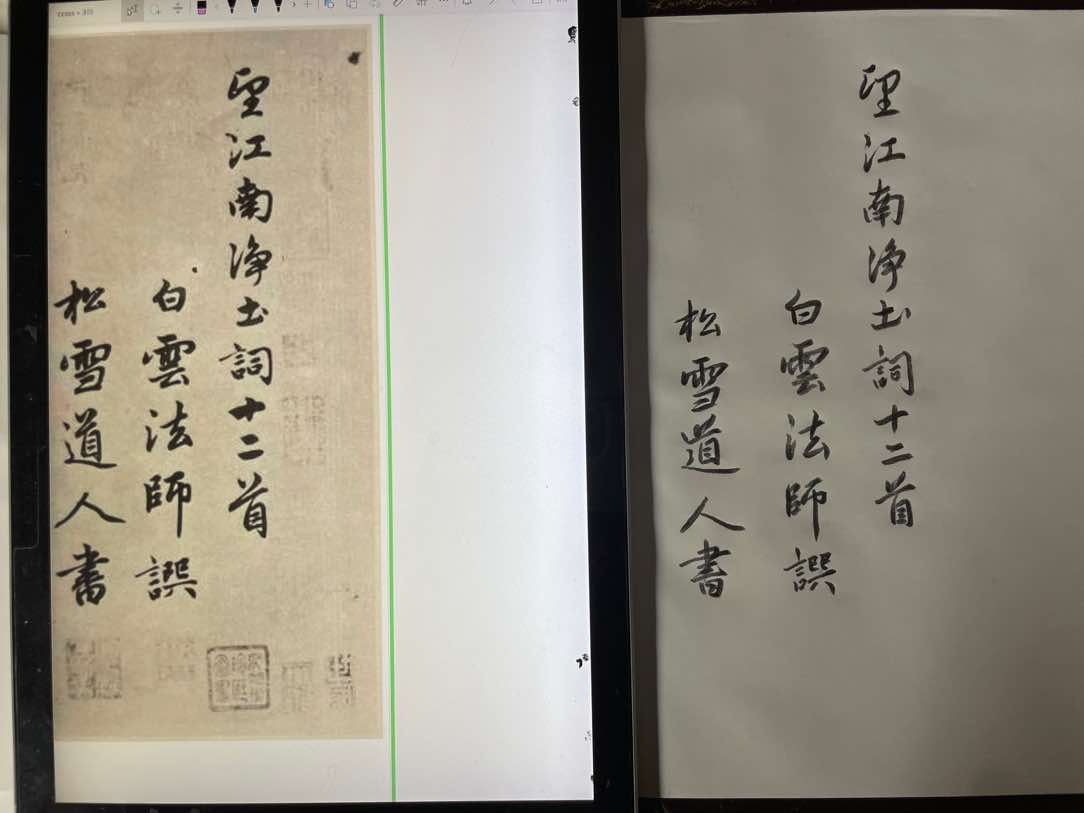 望江南淨土詞十二首
白雲法師譔
松雪道人書
望江南淨土詞十二首
白雲法師譔
松雪道人書